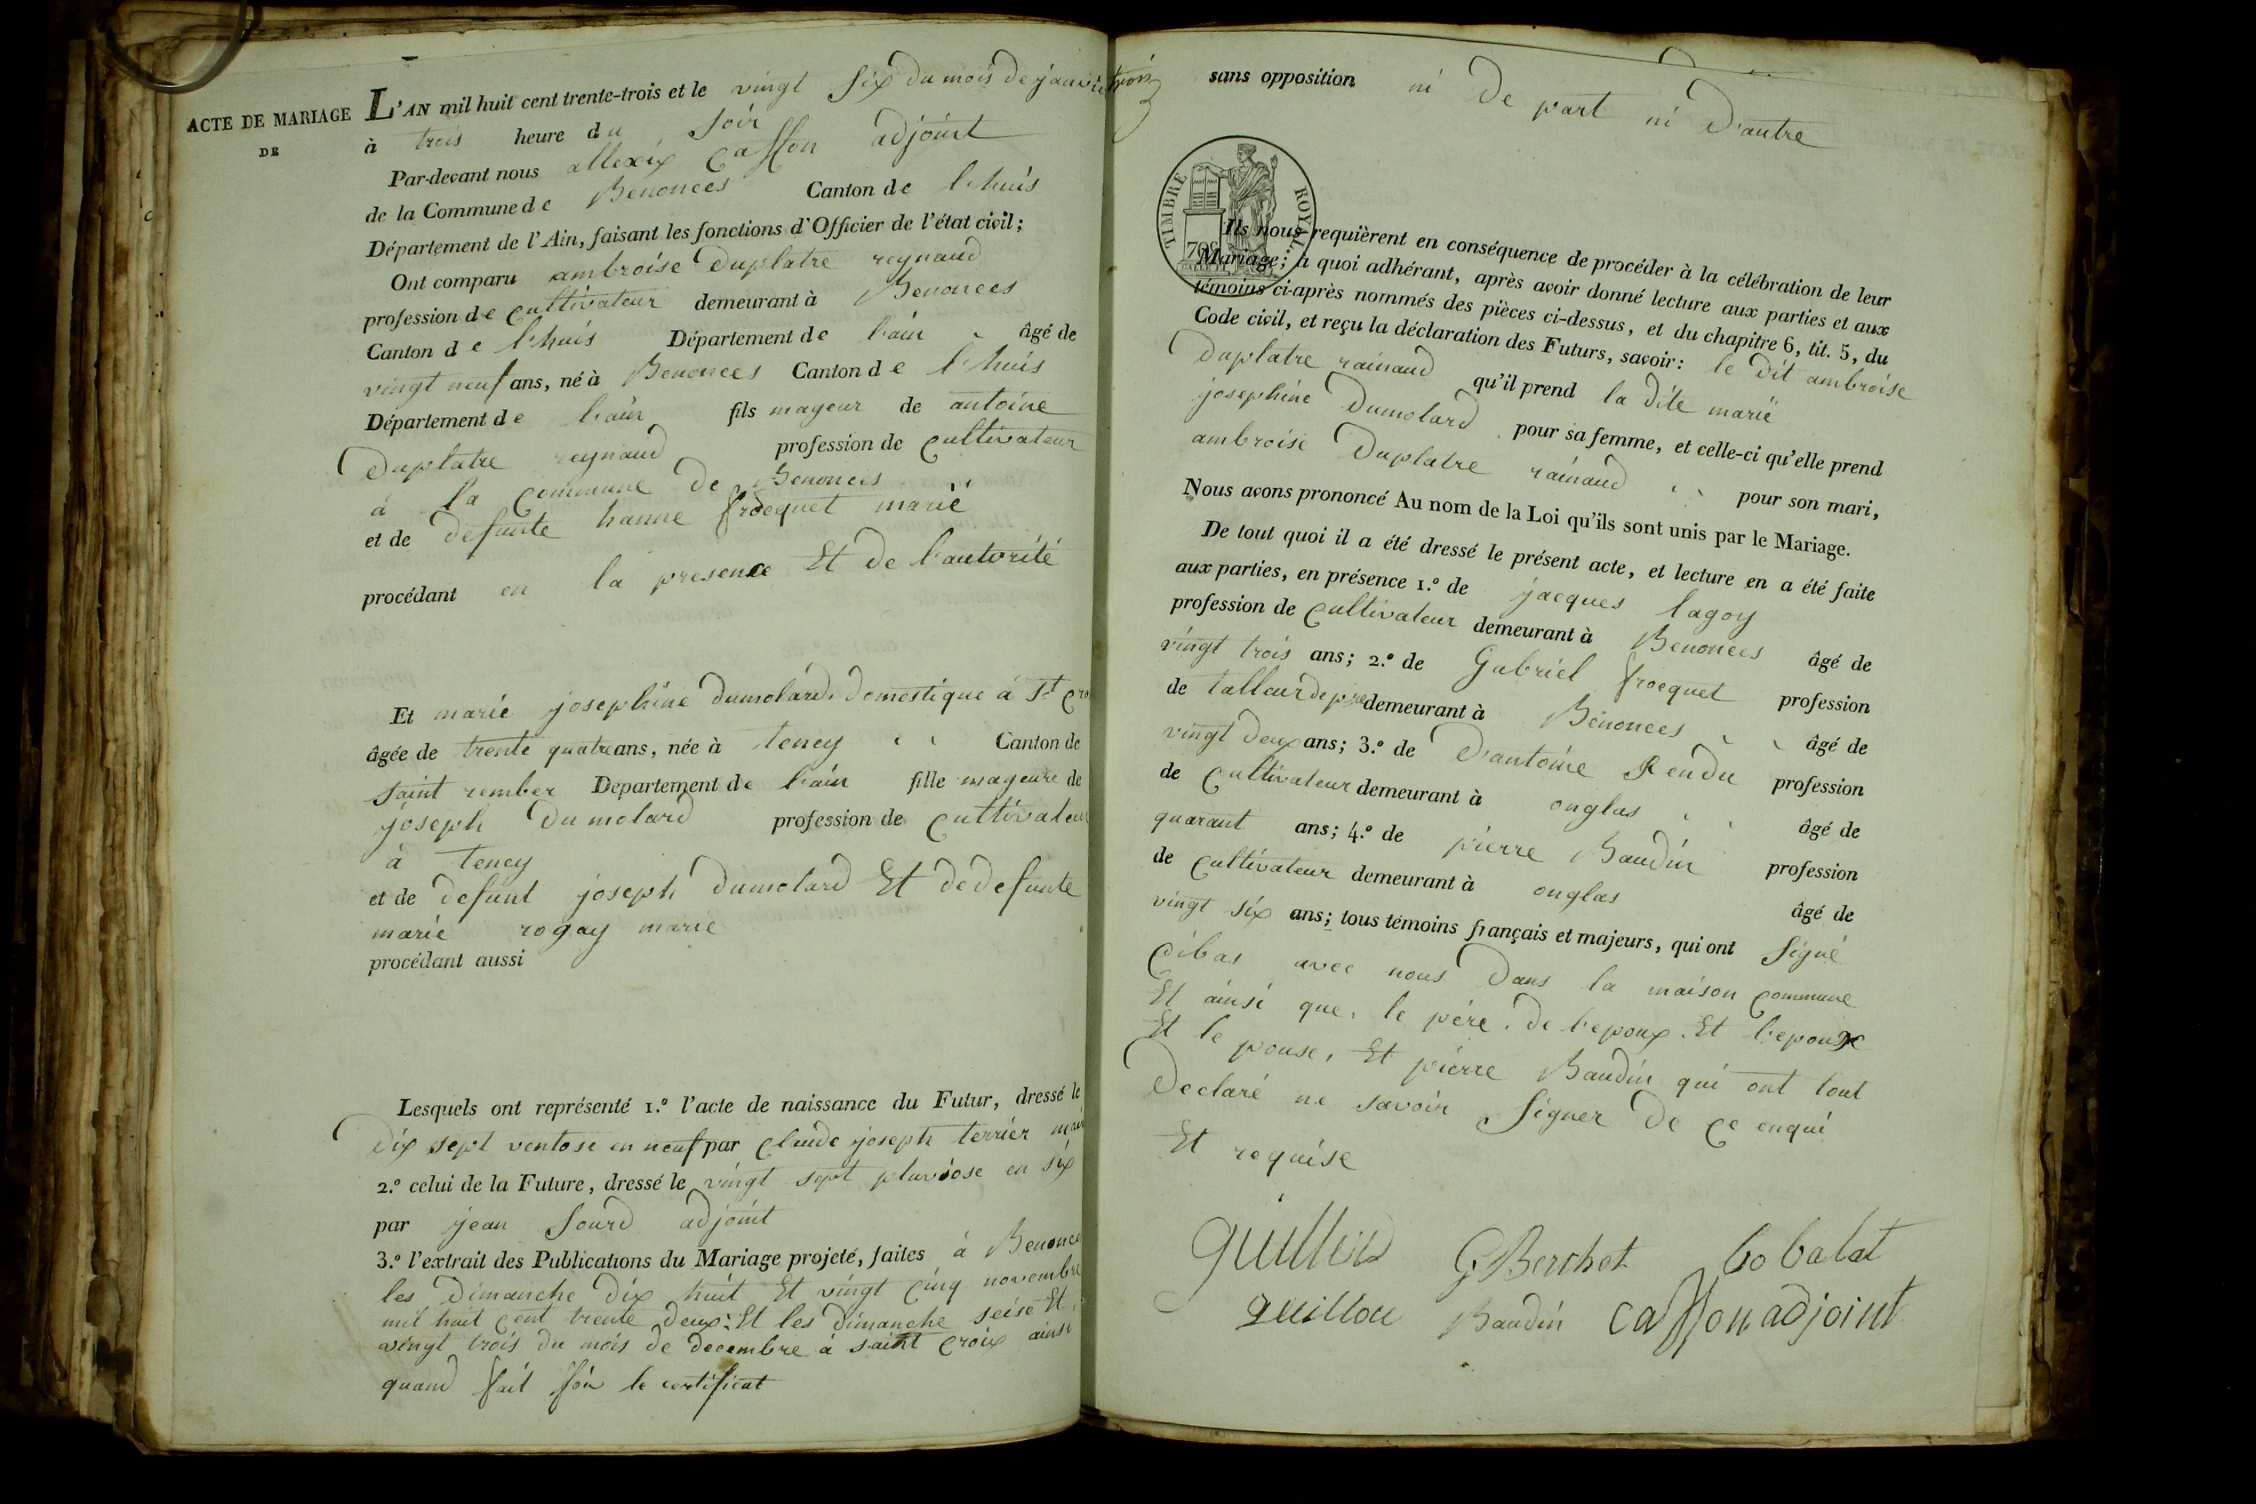 ACTE DE MARIAGE
DE
L'AN mil huit cent trente-trois et le vingt six du mois de janvie trois
à trois heure du soir
Par-devant nous allexix Casson adjoint
de la Commune de Benonces Canton de l'huis
Département de l'Ain, faisant les fonctions d'Officier de l'état civil;
Ont comparu ambroise Duplatre reynaud
profession de Cultivateur demeurant à Benonces
Canton de l'huis Département de l'ain âgé de
vingt neuf ans, né à Benonces Canton de l'huis
Département de l'ain fils mageur de antoine
Duplatre reynaud profession de Cultivateur
à la Commune de Benonces
et de defunte hanne frocquet marié
procédant en la presence Et de l'autorité
Et marie josephine Dumolard. Domestique à St Cro
âgée de trente quatre ans, née à teney Canton de
saint rember Département de l'ain fille mageure de
joseph Dumolard profession de Cultivateur
à teney
et de defunt joseph Dumolard Et de defunte
marie rogay marié
procédant aussi
Lesquels ont représenté 1.º l'acte de naissance du Futur, dressé le
Dix sept ventose en neuf par Claude joseph terrier mair
2.º celui de la Future, dressé le vingt sept pluviose en six
par jean Sourd adjoint
3.º l'extrait des Publications du Mariage projeté, faites à Benonce
les Dimanche Dix huit Et vingt Cinq novembre
mil huit Cent trente Deux: Et les Dimanche seise Et
vingt trois du mois de Decembre à saint Croix ainsi
quand fait foi le certificat
sans opposition ni de part ni D'autre
TIMBRE ROYAL
70
Ils nous requièrent en conséquence de procéder à la célébration de leur
Mariage; à quoi adhérant, après avoir donné lecture aux parties et aux
témoins ci-après nommés des pièces ci-dessus, et du chapitre 6, tit. 5, du
Code civil, et reçu la déclaration des Futurs, savoir: le dit ambroise
Duplatre rainaud qu'il prend la Dite marie
josephine Dumolard pour sa femme, et celle-ci qu'elle prend
ambroise Duplatre rainaud pour son mari,
Nous avons prononcé Au nom de la Loi qu'ils sont unis par le Mariage.
De tout quoi il a été dressé le présent acte, et lecture en a été faite
aux parties, en présence 1.º de jacques lagoy
profession de Cultivateur demeurant à Benonces âgé de
vingt trois ans; 2.º de Gabriel frocquet profession
de talleur de pre demeurant à Benonces âgé de
vingt Deux ans; 3.º de D'antoine Rendu profession
de Cultivateur demeurant à onglas âgé de
quarant ans; 4.º de pierre Baudin profession
de Cultivateur demeurant à onglas âgé de
vingt six ans; tous témoins français et majeurs, qui ont Signé
Cibas avec nous Dans la maison Commune
Et ainsi que, le père. de l'epoux. Et l'epouse
Et le pouse, Et pierre Baudin qui ont tout
Declaré ne savoir Signer De Ce enqui
Et requise
guillin G Berchet bobalat
guillou Baudin Casson adjoint